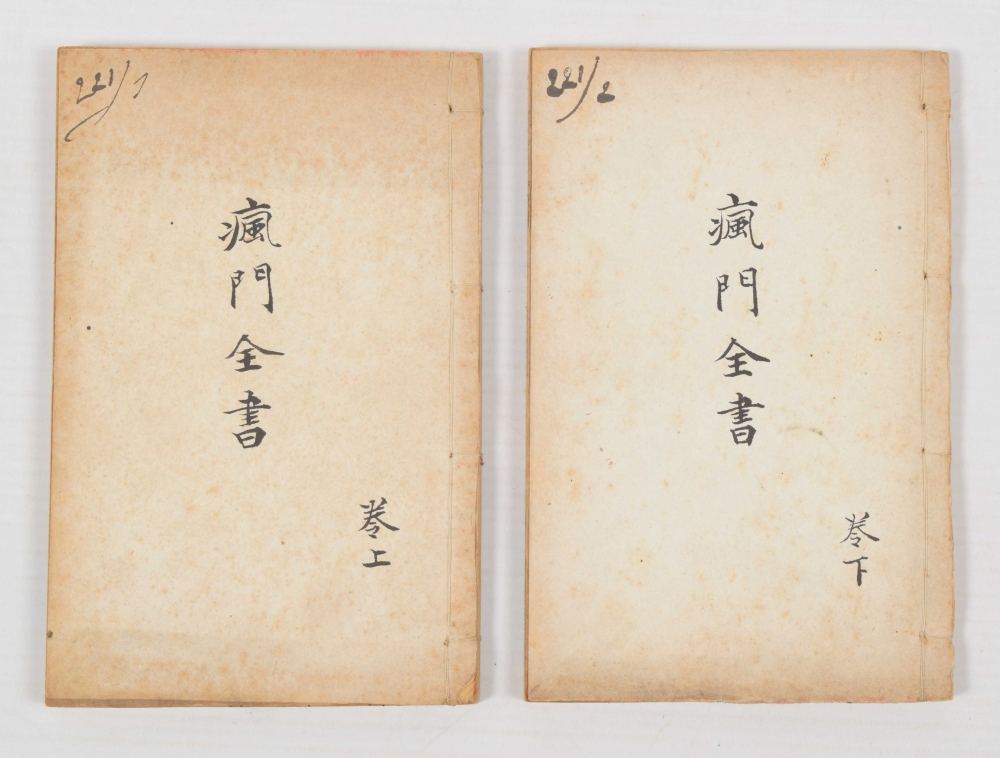 221/1
瘋門全書
卷上
221/2
瘋門全書
卷下